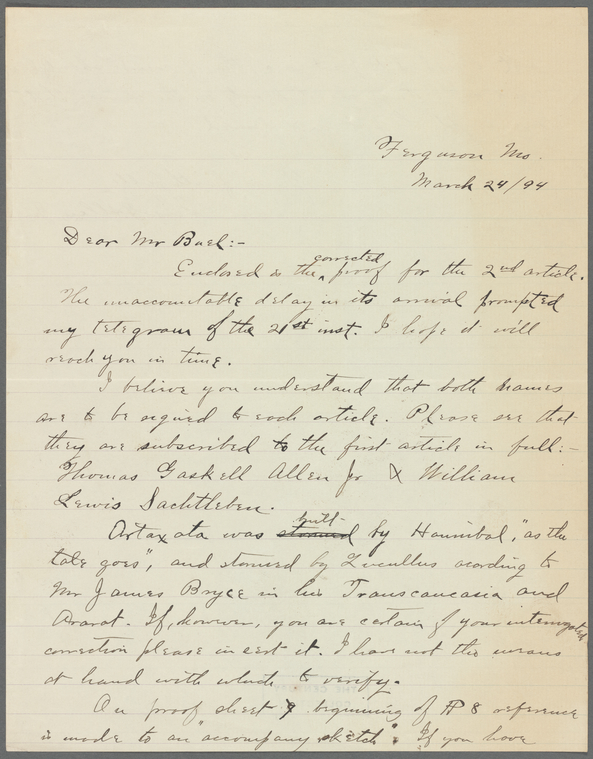 Ferguson Mo.
March 24/94
Dear Mr Buel:-
Enclosed is the corrected proof for the 2nd article.
The unaccountable delay in its arrival prompted
my telegram of the 21st inst. I hope it will
reach you in time.
I believe you understand that both names
are to be signed to each article. Please see that
they are subscribed to the first article in full:-
Thomas Gaskell Allen Jr & William
Lewis Sachtleben.
Artaxata was stormed built by Hannibal, "as the
tale goes", and stormed by Lucullus acording to
Mr James Bryce in his Transcaucasia and
Ararat. If, however, you are certain of your interrogated
correction please insert it. I have not the means
at hand with which to verify.
On proof sheet 9 beginning of ¶ 8 reference
is made to an "accompany sketch". If you have